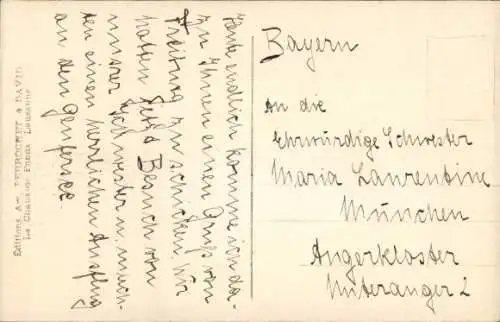 Heute endlich komme ich da-
zu Ihnen einen Gruß von
Freiburg zu schicken, wir
hatten jetzt Besuch von
unserer Schwester u. mach-
ten einen herrlichen Ausflug
an den Genfersee.
Bayern
An die
Ehrwürdige Schwester
Maria Laurentine
München
Angerkloster
Unteranger 2
Editions Art. PERROCHET & DAVID
La Chaux-de-Fonds Lausanne